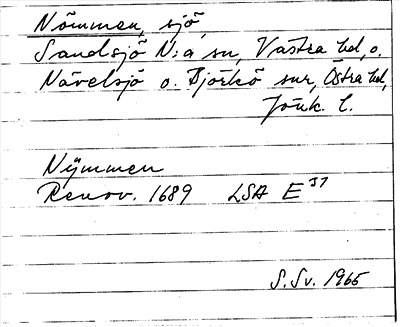 Nömmen, sjö,
Sandsjö N:a sn, Västra hd, o.
Nävelsjö o. Björkö snr, Östra hd,
Jönk. l.
Nÿmmen
Renov. 1689 LSA E 37
S.Sv. 1965